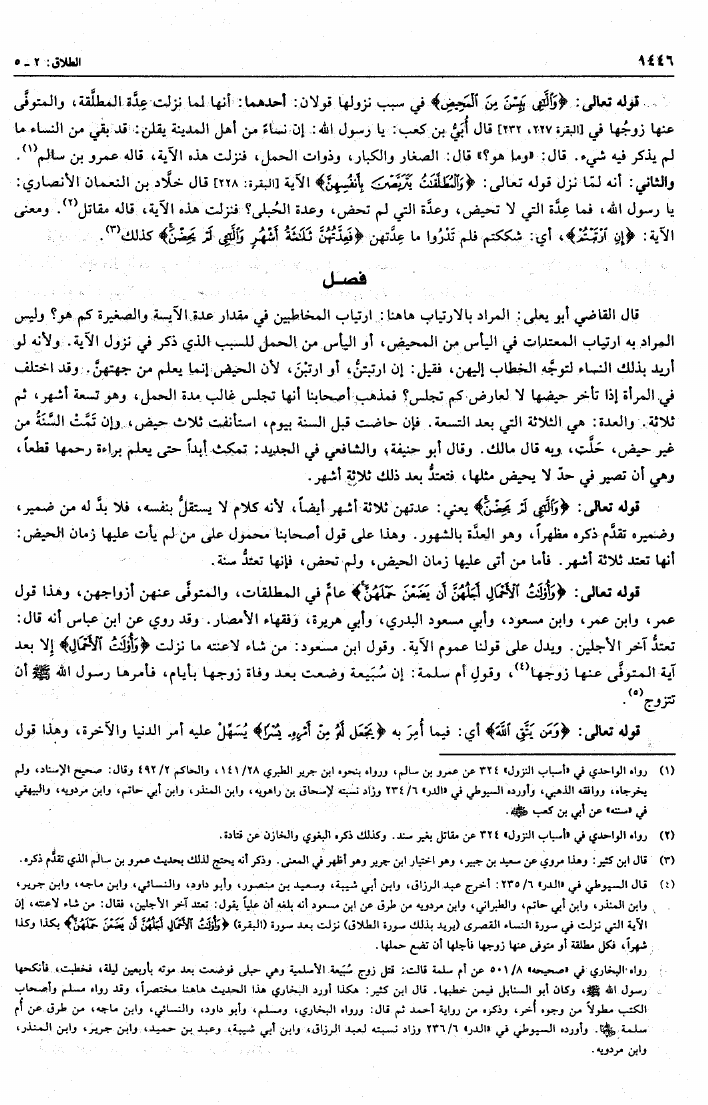 ١٤٤٦
الطلاق: ٢ ـ ٥
قوله تعالى: ﴿وَٱلَّٰٓـِٔى يَئِسْنَ مِنَ ٱلْمَحِيضِ﴾ في سبب نزولها قولان: أحدهما: أنها لما نزلت عِدَّة المطلَّقة، والمتوفَّى
عنها زوجُها في [البقرة ٢٢٧، ٢٣٢] قال أُبَيُّ بن كعب: يا رسول الله: إن نساءً من أهل المدينة يقلن: قد بقي من النساء ما
لم يذكر فيه شيء. قال: «وما هو؟» قال: الصغار والكبار، وذوات الحمل، فنزلت هذه الآية، قاله عمرو بن سالم(١).
والثاني: أنه لمّا نزل قوله تعالى: ﴿وَٱلْمُطَلَّقَٰتُ يَتَرَبَّصْنَ بِأَنفُسِهِنَّ﴾ الآية [البقرة: ٢٢٨] قال خلَّاد بن النعمان الأنصاري:
يا رسول الله، فما عِدة التي لا تحيض، وعدَّة التي لم تحض، وعدة الحُبلى؟ فنزلت هذه الآية، قاله مقاتل(٢). ومعنى
الآية: ﴿إِنِ ٱرْتَبْتُمْ﴾، أي: شككتم فلم تَدْرُوا ما عِدَّتهن ﴿فَعِدَّتُهُنَّ ثَلَٰثَةُ أَشْهُرٍ وَٱلَّٰٓـِٔى لَمْ يَحِضْنَ﴾ كذلك(٣).
فصل
قال القاضي أبو يعلى: المراد بالارتياب هاهنا: ارتياب المخاطبين في مقدار عدة الآيسة والصغيرة كم هو؟ وليس
المراد به ارتياب المعتدات في اليأس من المحيض، أو اليأس من الحمل للسبب الذي ذكر في نزول الآية. ولأنه لو
أريد بذلك النساء لتوجَّه الخطاب إليهن، فقيل: إن ارتبتنُّ، أو ارتبْنَ، لأن الحيض إنما يعلم من جهتهنَّ. وقد اختلف
في المرأة إذا تأخر حيضها لا لعارض كم تجلس؟ فمذهب أصحابنا أنها تجلس غالب مدة الحمل، وهو تسعة أشهر، ثم
ثلاثة. والعدة: هي الثلاثة التي بعد التسعة. فإن حاضت قبل السنة بيوم، استأنفت ثلاث حيض، وإن تَمَّتْ السَّنَةُ من
غير حيض، حَلَّت، وبه قال مالك. وقال أبو حنيفة، والشافعي في الجديد: تمكث أبداً حتى يعلم براءة رحمها قطعاً،
وهي أن تصير في حدّ لا يحيض مثلها، فتعتدُّ بعد ذلك ثلاثة أشهر.
قوله تعالى: ﴿وَٱلَّٰٓـِٔى لَمْ يَحِضْنَ﴾ يعني: عدتهن ثلاثة أشهر أيضاً، لأنه كلام لا يستقلُّ بنفسه، فلا بدَّ له من ضمير،
وضميره تقدَّم ذكره مظهراً، وهو العدَّة بالشهور. وهذا على قول أصحابنا محمول على من لم يأت عليها زمان الحيض:
أنها تعتد ثلاثة أشهر. فأما من أتى عليها زمان الحيض، ولم تحض، فإنها تعتدُّ سنة.
قوله تعالى: ﴿وَأُو۟لَٰتُ ٱلْأَحْمَالِ أَجَلُهُنَّ أَن يَضَعْنَ حَمْلَهُنَّ﴾ عامٌّ في المطلقات، والمتوفَّى عنهن أزواجهن، وهذا قول
عمر، وابن عمر، وابن مسعود، وأبي مسعود البدري، وأبي هريرة، وفقهاء الأمصار. وقد روي عن ابن عباس أنه قال:
تعتدُّ آخر الأجلين. ويدل على قولنا عموم الآية. وقول ابن مسعود: من شاء لاعنته ما نزلت ﴿وَأُو۟لَٰتُ ٱلْأَحْمَالِ﴾ إلا بعد
آية المتوفَّى عنها زوجها(٤)، وقولِ أم سلمة: إن سُبَيعة وضعت بعد وفاة زوجها بأيام، فأمرها رسول الله ﷺ أن
تتزوج(٥).
قوله تعالى: ﴿وَمَن يَتَّقِ ٱللَّهَ﴾ أي: فيما أُمِرَ به ﴿يَجْعَل لَّهُۥ مِنْ أَمْرِهِۦ يُسْرًا﴾ يُسَهِّلْ عليه أمر الدنيا والآخرة، وهذا قول
(١) رواه الواحدي في «أسباب النزول» ٣٢٤ عن عمرو بن سالم، ورواه بنحوه ابن جرير الطبري ١٤١/٢٨، والحاكم ٤٩٢/٢ وقال: صحيح الإسناد، ولم
يخرجاه، ووافقه الذهبي، وأورده السيوطي في «الدر» ٢٣٤/٦ وزاد نسبته لإسحاق بن راهويه، وابن المنذر، وابن أبي حاتم، وابن مردويه، والبيهقي
في «سننه» عن أبي بن كعب رضي الله عنه.
(٢) رواه الواحدي في «أسباب النزول» ٣٢٤ عن مقاتل بغير سند. وكذلك ذكره البغوي والخازن عن قتادة.
(٣) قال ابن كثير: وهذا مروي عن سعيد بن جبير، وهو اختيار ابن جرير وهو أظهر في المعنى. وذكر أنه يحتج لذلك بحديث عمرو بن سالم الذي تقدَّم ذكره.
(٤) قال السيوطي في «الدر» ٢٣٥/٦: أخرج عبد الرزاق، وابن أبي شيبة، وسعيد بن منصور، وأبو داود، والنسائي، وابن ماجه، وابن جرير،
وابن المنذر، وابن أبي حاتم، والطبراني، وابن مردويه من طرق عن ابن مسعود أنه بلغه أن علياً يقول: تعتد آخر الأجلين، فقال: من شاء لاعنته، إن
الآية التي نزلت في سورة النساء القصرى (يريد بذلك سورة الطلاق) نزلت بعد سورة (البقرة) ﴿وَأُو۟لَٰتُ ٱلْأَحْمَالِ أَجَلُهُنَّ أَن يَضَعْنَ حَمْلَهُنَّ﴾ بكذا وكذا
شهراً، فكل مطلقة أو متوفى عنها زوجها فأجلها أن تضع حملها.
(٥) رواه البخاري في «صحيحه» ٥٠١/٨ عن أم سلمة قالت: قتل زوج سُبَيعة الأسلمية وهي حبلى فوضعت بعد موته بأربعين ليلة، فخطبت، فأنكحها
رسول الله ﷺ، وكان أبو السنابل فيمن خطبها. قال ابن كثير: هكذا أورد البخاري هذا الحديث هاهنا مختصراً، وقد رواه مسلم وأصحاب
الكتب مطولاً من وجوه أُخر، وذكره من رواية أحمد ثم قال: ورواه البخاري، ومسلم، وأبو داود، والنسائي، وابن ماجه، من طرق عن أم
سلمة رضي الله عنها. وأورده السيوطي في «الدر» ٢٣٦/٦ وزاد نسبته لعبد الرزاق، وابن أبي شيبة، وعبد بن حميد، وابن جرير، وابن المنذر،
وابن مردويه.